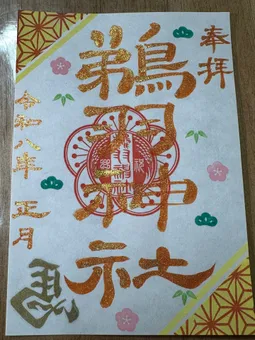 奉拝
鵜羽神社
令和八年 正月
馬